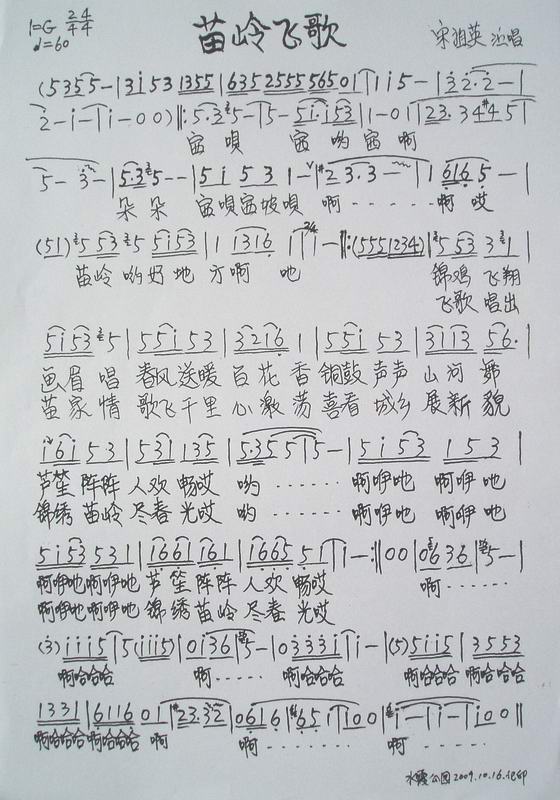 1=G 2/4 4/4
♩=60
苗岭飞歌
宋祖英 演唱
(5355-|3i53 1355|6355 2555 5650|1i5-|32·2-|
2-i-|i-00)‖:5·35-|5-5i·i53|1-01|23·34#45|
窗呗 窗哟窗啊
5-3-|5·35--|5i53 1-|#23·3-|1 6165-|
朵朵 窗呗窗坡呗 啊-----啊哎
(51)5535 5i53|11316 1|i-‖:(5551234)|5533 1|
苗岭哟好地方啊 吔 锦鸡飞翔
飞歌唱出
5i535|55i53|32161|55i53|3113 56·|
画眉唱 春风送暖 百花香 铜鼓声声 山河舞
苗家情 歌飞千里 心激荡 喜看城乡 展新貌
i6i53|531135|5·3555-|5i53 153|
芦笙阵阵 人欢畅哎 哟······ 啊咿吔 啊咿吔
锦绣苗岭 尽春光哎 哟······ 啊咿吔 啊咿吔
5i53 531|1661 161|1665 51|i-:‖00|0636|5-|
啊咿吔啊咿吔 芦笙阵阵 人欢畅哎 啊······
啊咿吔啊咿吔 锦绣苗岭 尽春光哎
(3)iii5|5(iii5)|0i36|5-|0333i|i-|(5)5ii5|3553|
啊哈哈哈 啊····· 啊哈哈哈 啊哈哈 啊哈哈哈
1331|6116 01|#23·32|0616|651|100|i-|i-|i00‖
啊哈哈哈啊哈哈哈 啊 啊······· 啊·····
水霞公园2009.10.16.